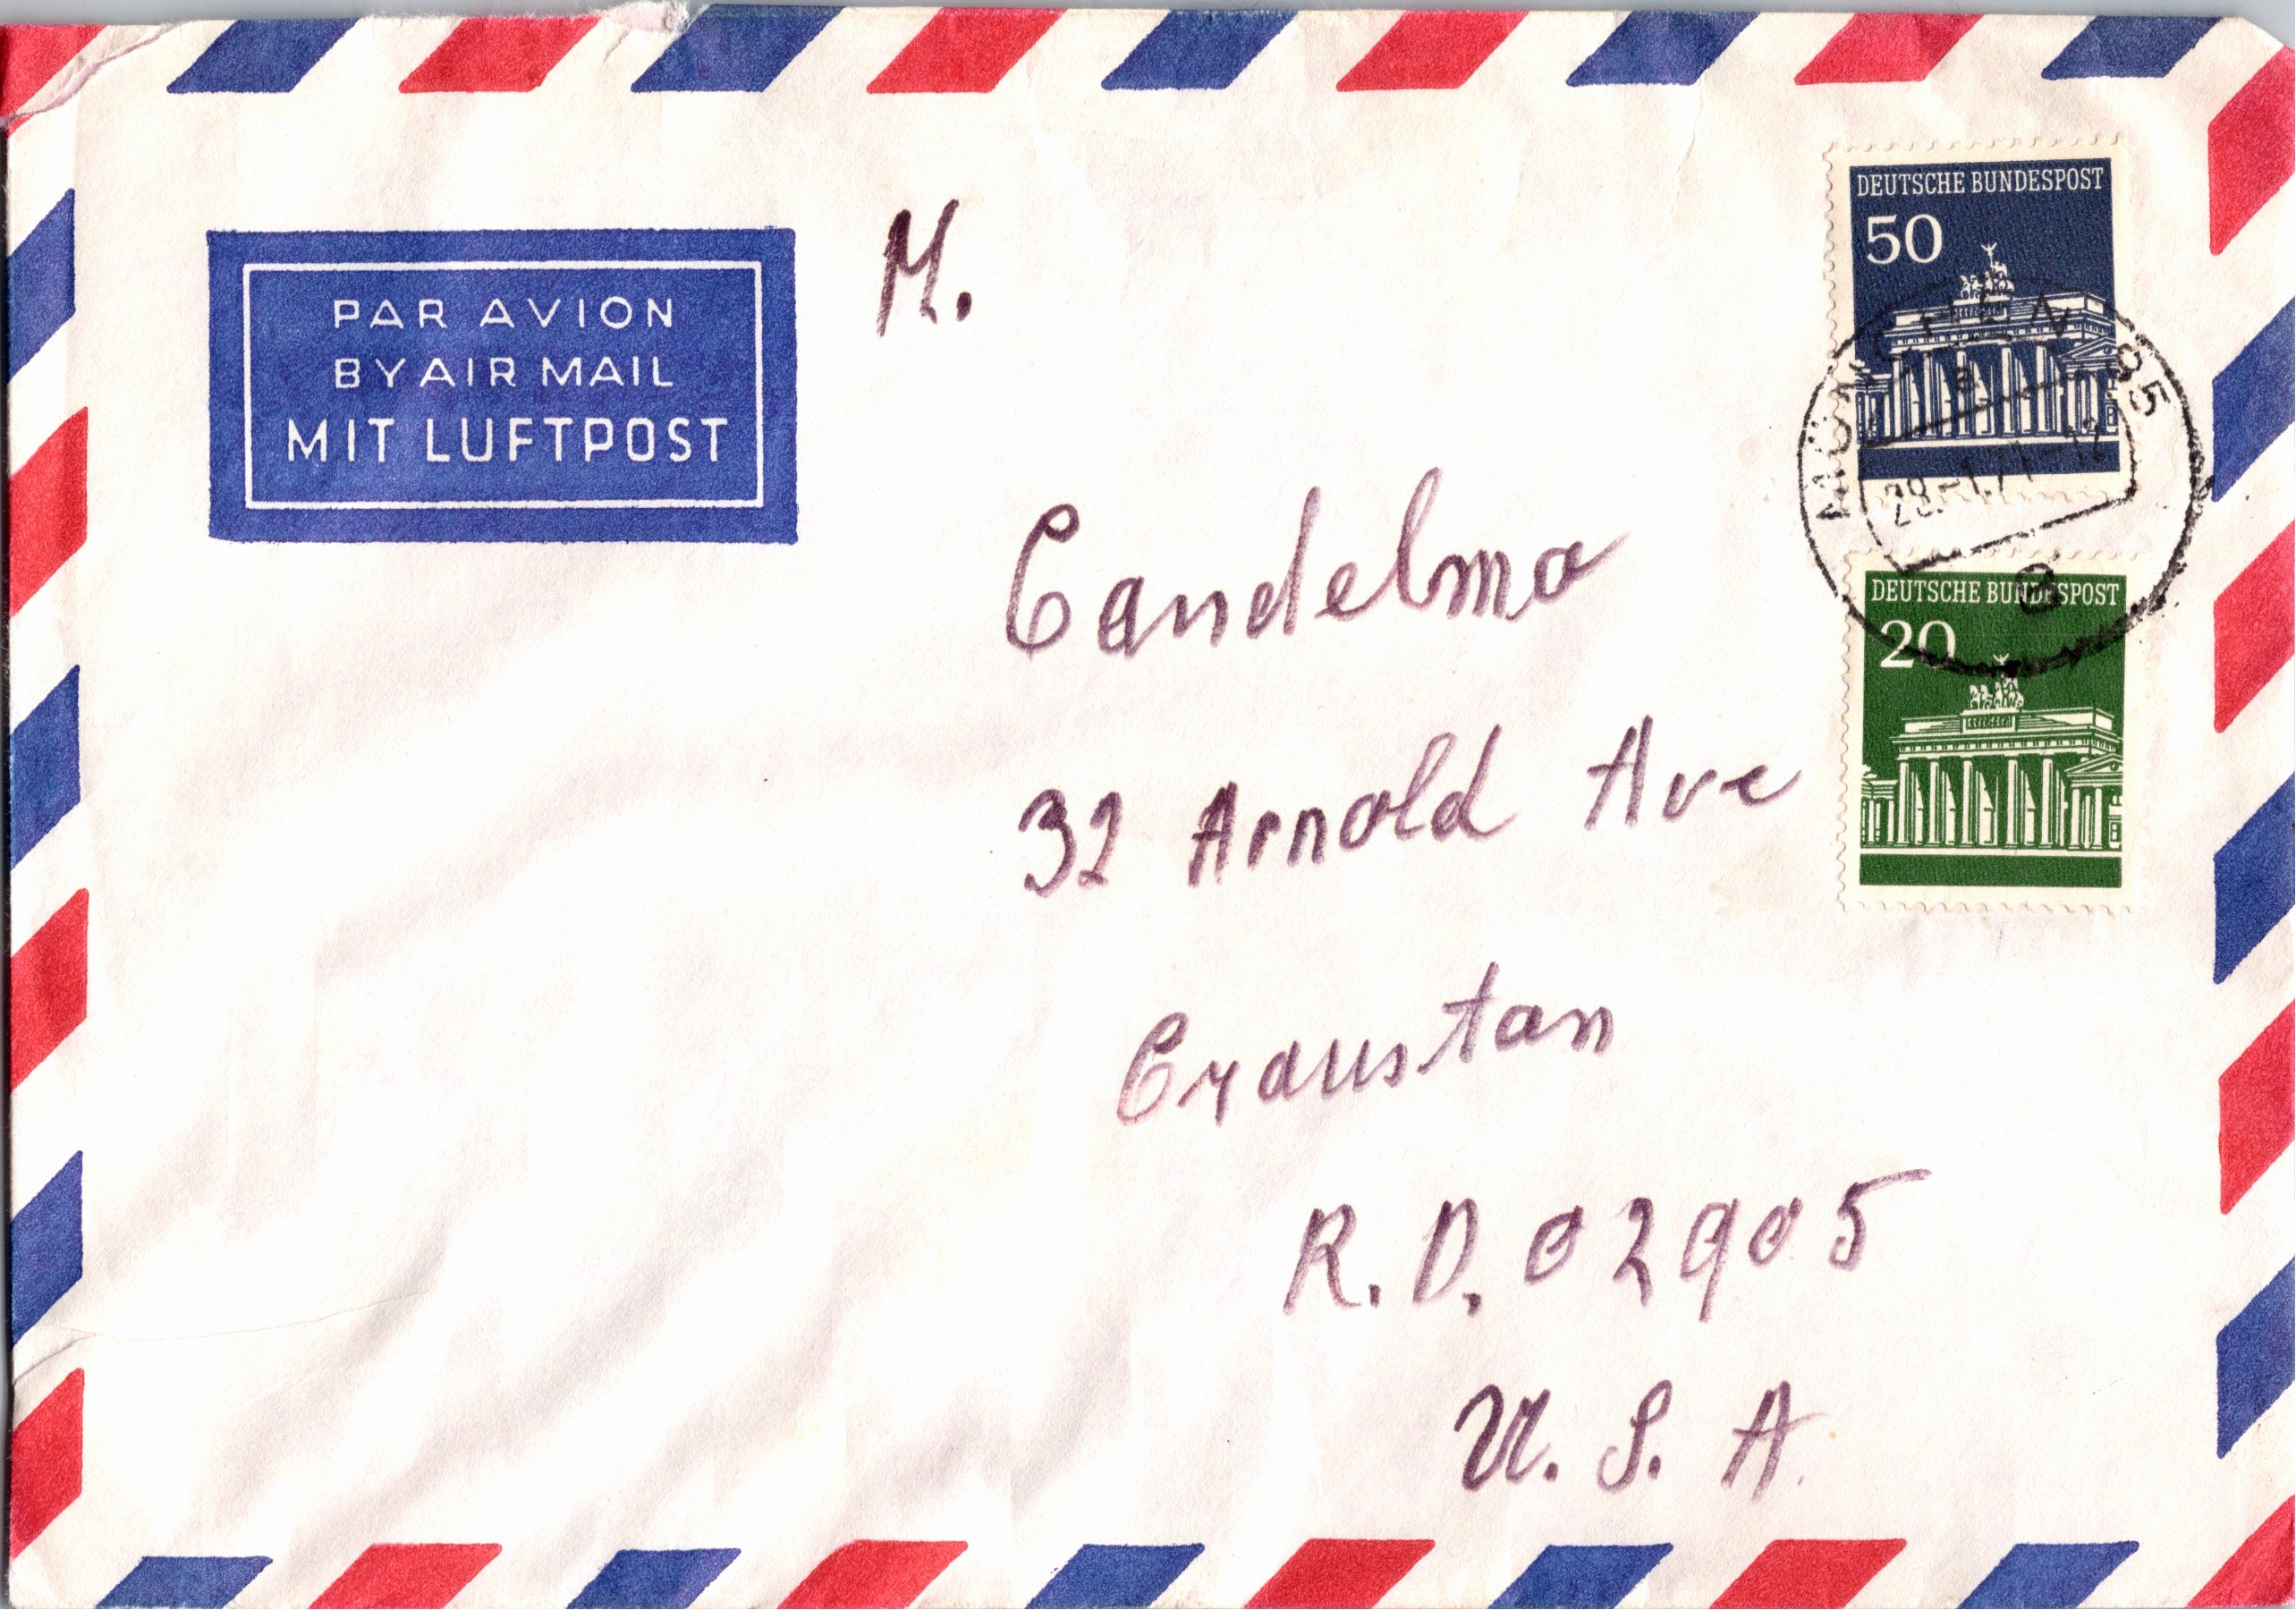 PAR AVION
BY AIR MAIL
MIT LUFTPOST
M.
Candelmo
32 Arnold Ave
Cranstan
R.D. 02905
U.S.A.
DEUTSCHE BUNDESPOST
50
MÜNCHEN 95
a
28.-1.71-12
DEUTSCHE BUNDESPOST
20